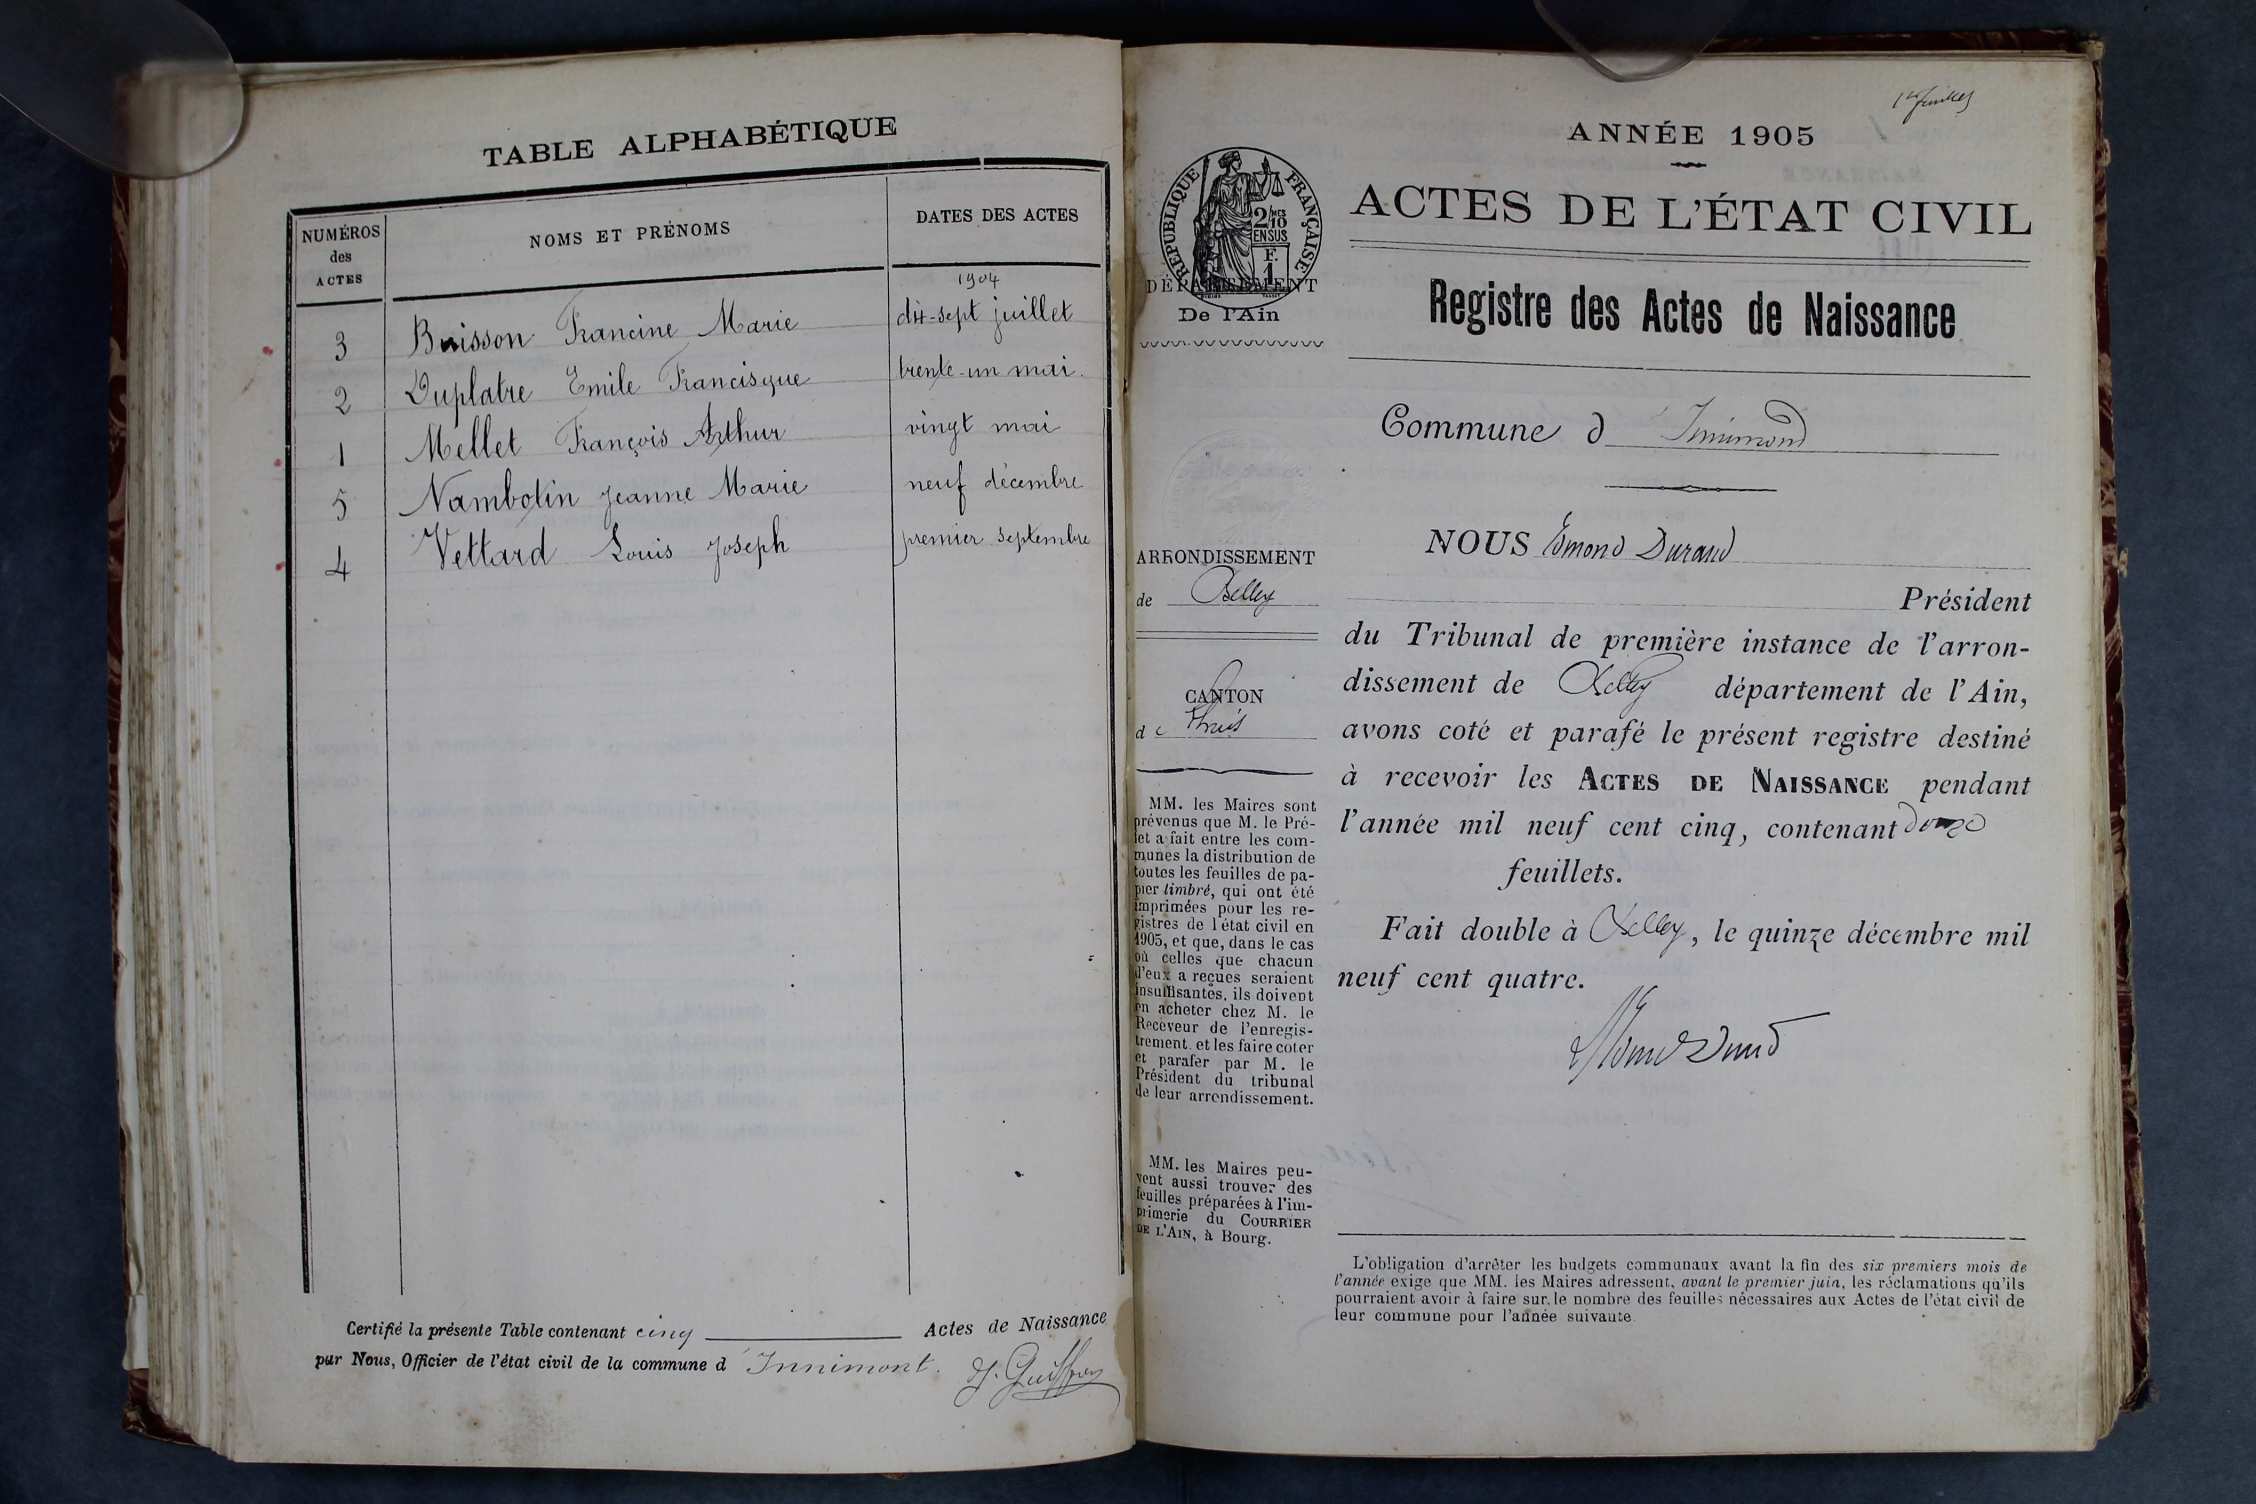 TABLE ALPHABÉTIQUE
NUMÉROS des ACTES
NOMS ET PRÉNOMS
DATES DES ACTES
1904
3 Buisson Francine Marie dix-sept juillet
2 Duplatre Emile Francisque trente-un mai.
1 Mellet François Arthur vingt mai
5 Nambotin Jeanne Marie neuf décembre
4 Vettard Louis Joseph premier septembre
Certifié la présente Table contenant cinq Actes de Naissance
par Nous, Officier de l'état civil de la commune d'Innimont.
J. Guiffray
1er feuillet
ANNÉE 1905
ACTES DE L'ÉTAT CIVIL
RÉPUBLIQUE FRANÇAISE
2/MES
10
EN SUS
F.
1
DÉPARTEMENT
De l'Ain
Registre des Actes de Naissance
Commune d'Innimond
ARRONDISSEMENT
de Belley
CANTON
de Lhuis
MM. les Maires sont
prévenus que M. le Pré-
fet a fait entre les com-
munes la distribution de
toutes les feuilles de pa-
pier timbré, qui ont été
imprimées pour les re-
gistres de l'état civil en
1905, et que, dans le cas
où celles que chacun
d'eux a reçues seraient
insuffisantes, ils doivent
en acheter chez M. le
Receveur de l'enregis-
trement et les faire coter
et parafer par M. le
Président du tribunal
de leur arrondissement.
MM. les Maires peu-
vent aussi trouver des
feuilles préparées à l'im-
primerie du COURRIER
DE L'AIN, à Bourg.
NOUS Edmond Durand
Président
du Tribunal de première instance de l'arron-
dissement de Belley département de l'Ain,
avons coté et parafé le présent registre destiné
à recevoir les ACTES DE NAISSANCE pendant
l'année mil neuf cent cinq, contenant douze
feuillets.
Fait double à Belley, le quinze décembre mil
neuf cent quatre.
Edmond Durand
L'obligation d'arrêter les budgets communaux avant la fin des six premiers mois de
l'année exige que MM. les Maires adressent, avant le premier juin, les réclamations qu'ils
pourraient avoir à faire sur le nombre des feuilles nécessaires aux Actes de l'état civil de
leur commune pour l'année suivante.